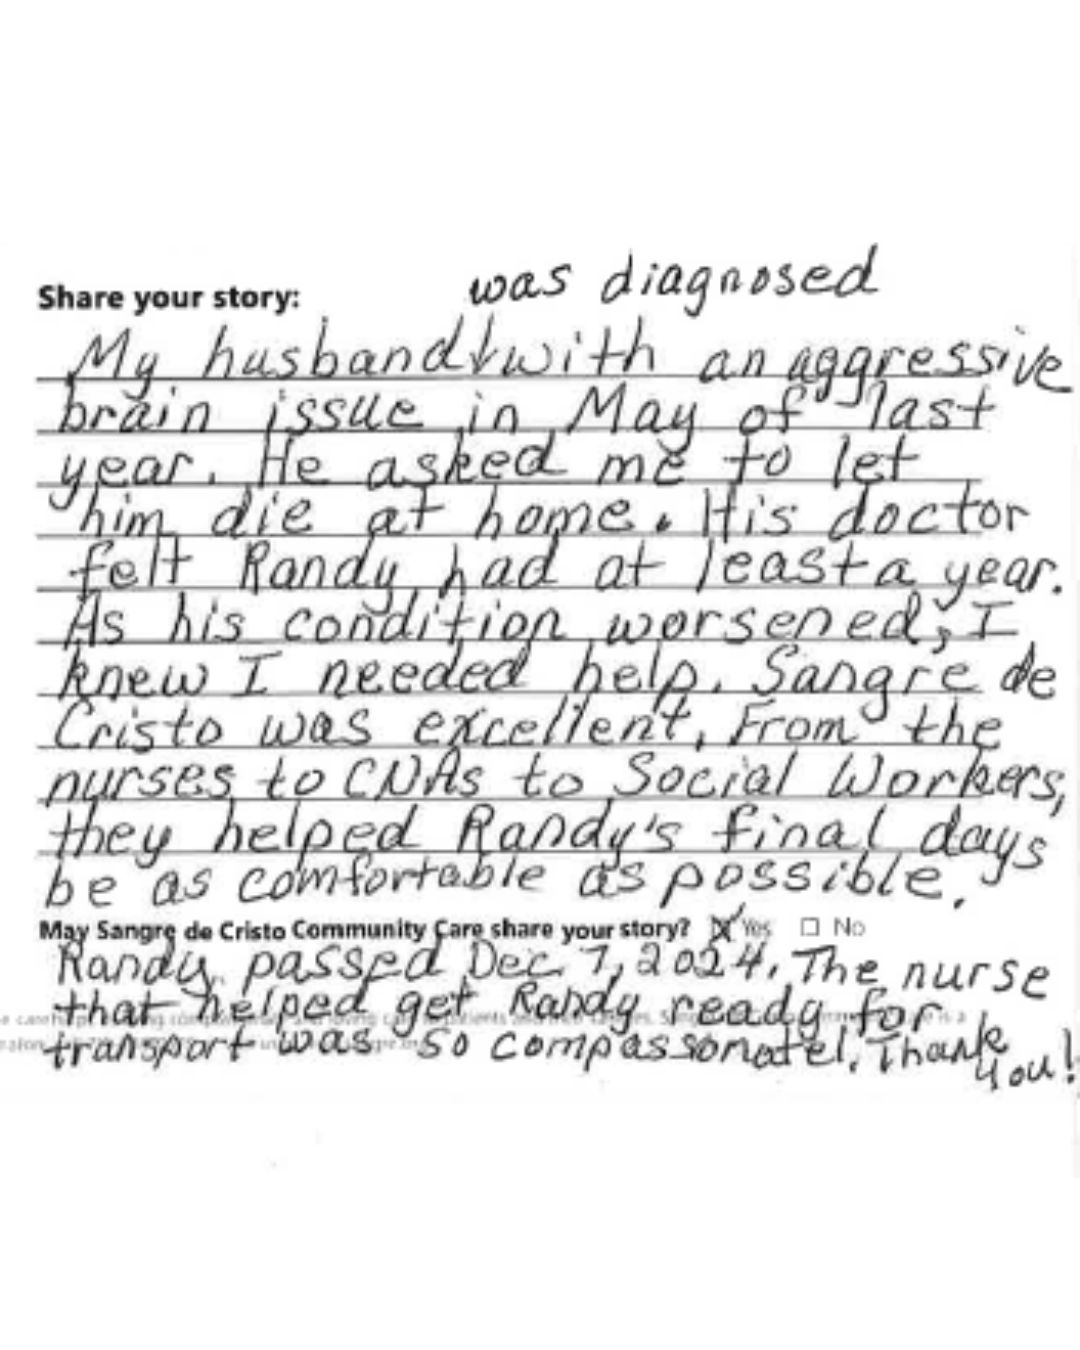 Share your story:
was diagnosed
My husband↓with an aggressive
brain issue in May of last
year. He asked me to let
him die at home. His doctor
felt Randy had at least a year.
As his condition worsened, I
knew I needed help. Sangre de
Cristo was excellent. From the
nurses to CNAs to Social Workers,
they helped Randy's final days
be as comfortable as possible.
May Sangre de Cristo Community Care share your story? ☒ Yes ☐ No
Randy passed Dec. 7, 2024. The nurse
that helped get Randy ready for
transport was so compassonatel. Thank
you!